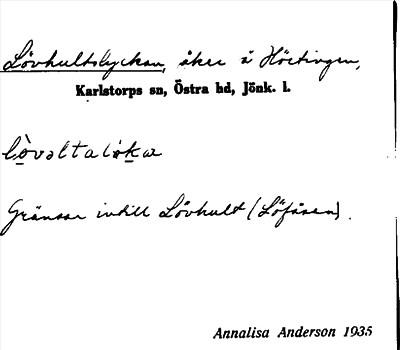 Lövhultslyckan, åker å Hörtingen,
Karlstorps sn, Östra hd, Jönk. l.
lòvəltalikɑ
Gränsar intill Lövhult (Löfåsen).
Annalisa Anderson 1935